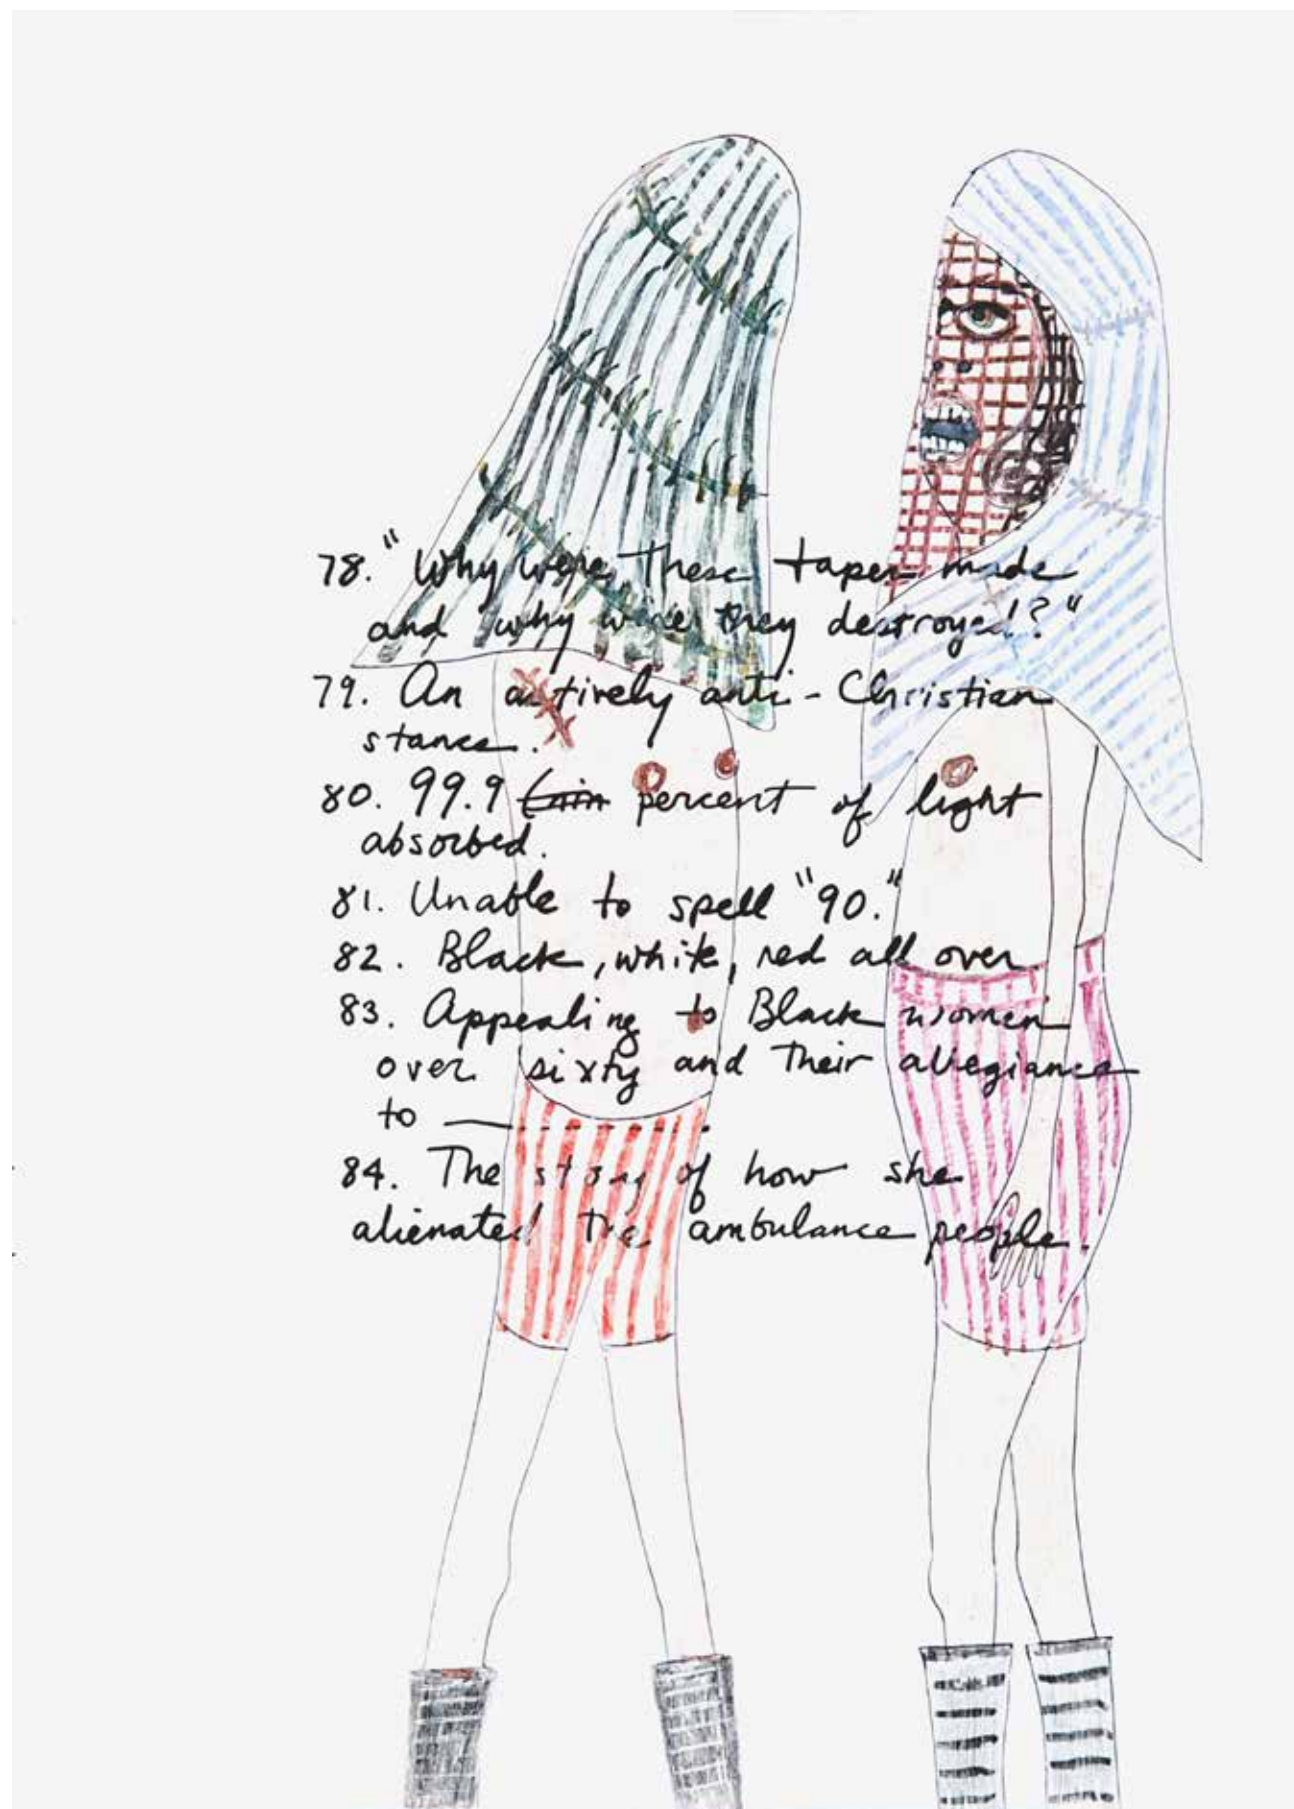 78. "Why were these tapes made
and why were they destroyed?"
79. An actively anti-Christian
stance.
80. 99.9 percent of light
absorbed.
81. Unable to spell "90."
82. Black, white, red all over.
83. Appealing to Black women
over sixty and their allegiance
to ________.
84. The story of how she
alienated the ambulance people.